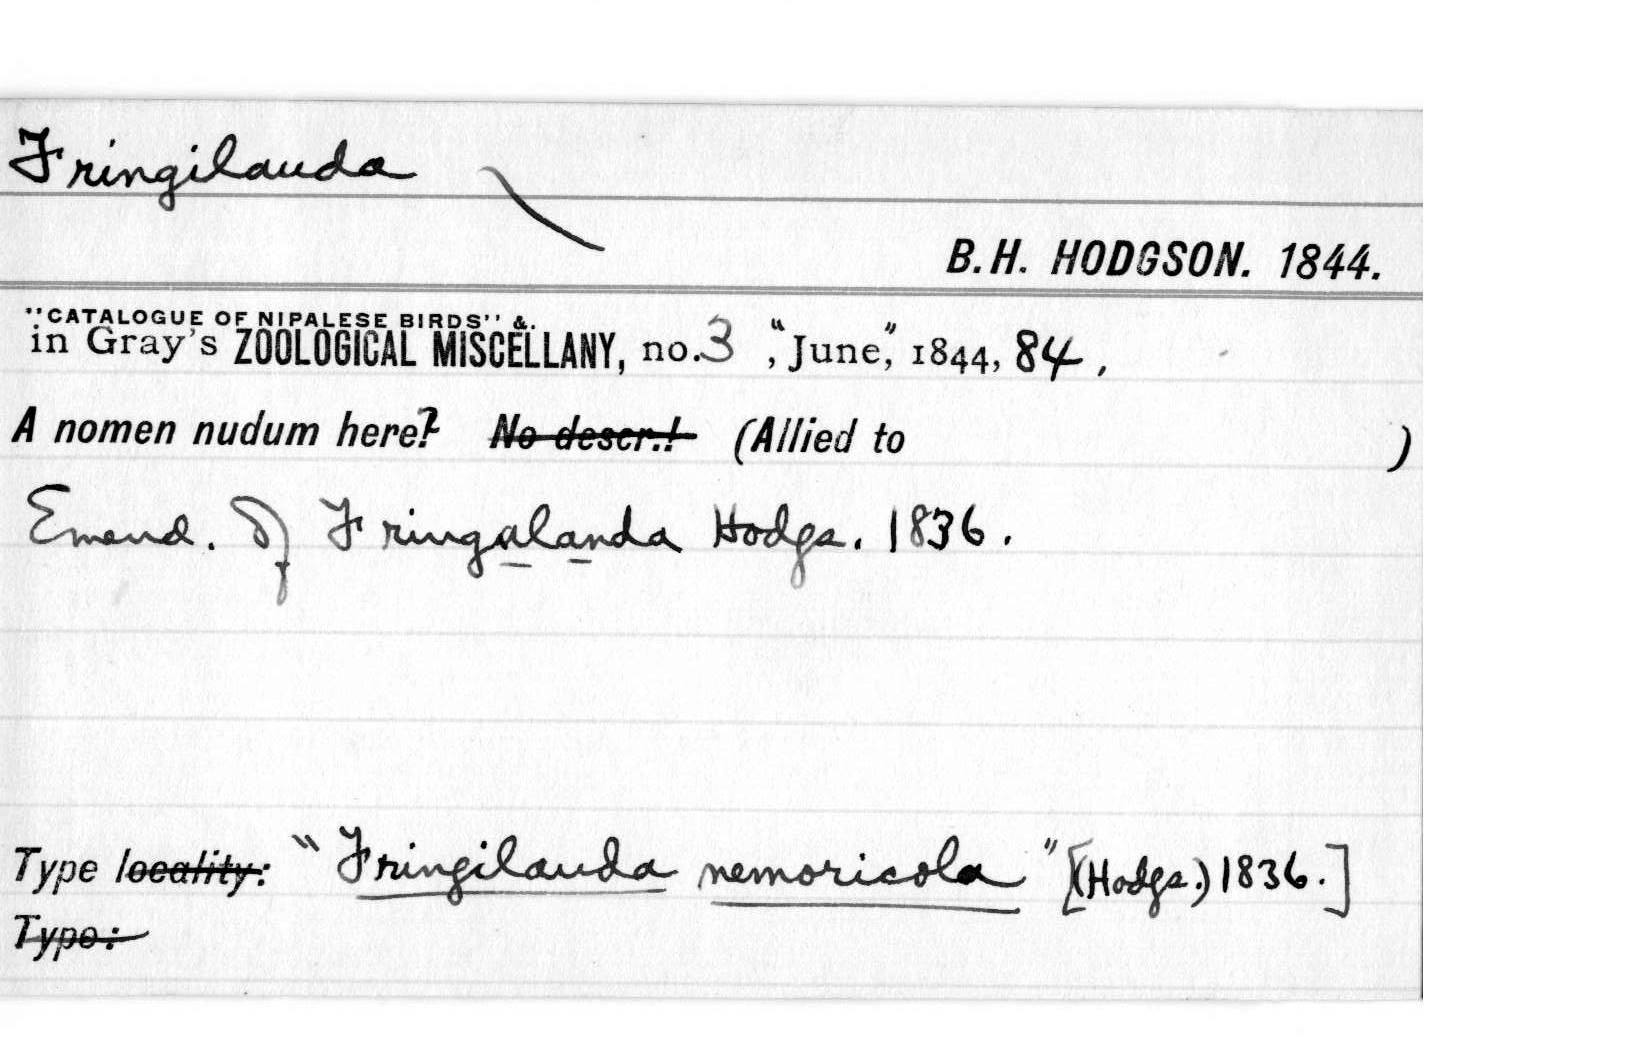 Fringilauda
B. H. HODGSON. 1844.
"CATALOGUE OF NIPALESE BIRDS" &.
in Gray's ZOOLOGICAL MISCELLANY, no. 3, "June," 1844, 84,
A nomen nudum here? No descr.! (Allied to )
Emend. of Fringalanda Hodgs. 1836.
Type locality: "Fringilauda nemoricola" [(Hodgs.) 1836.]
Type: